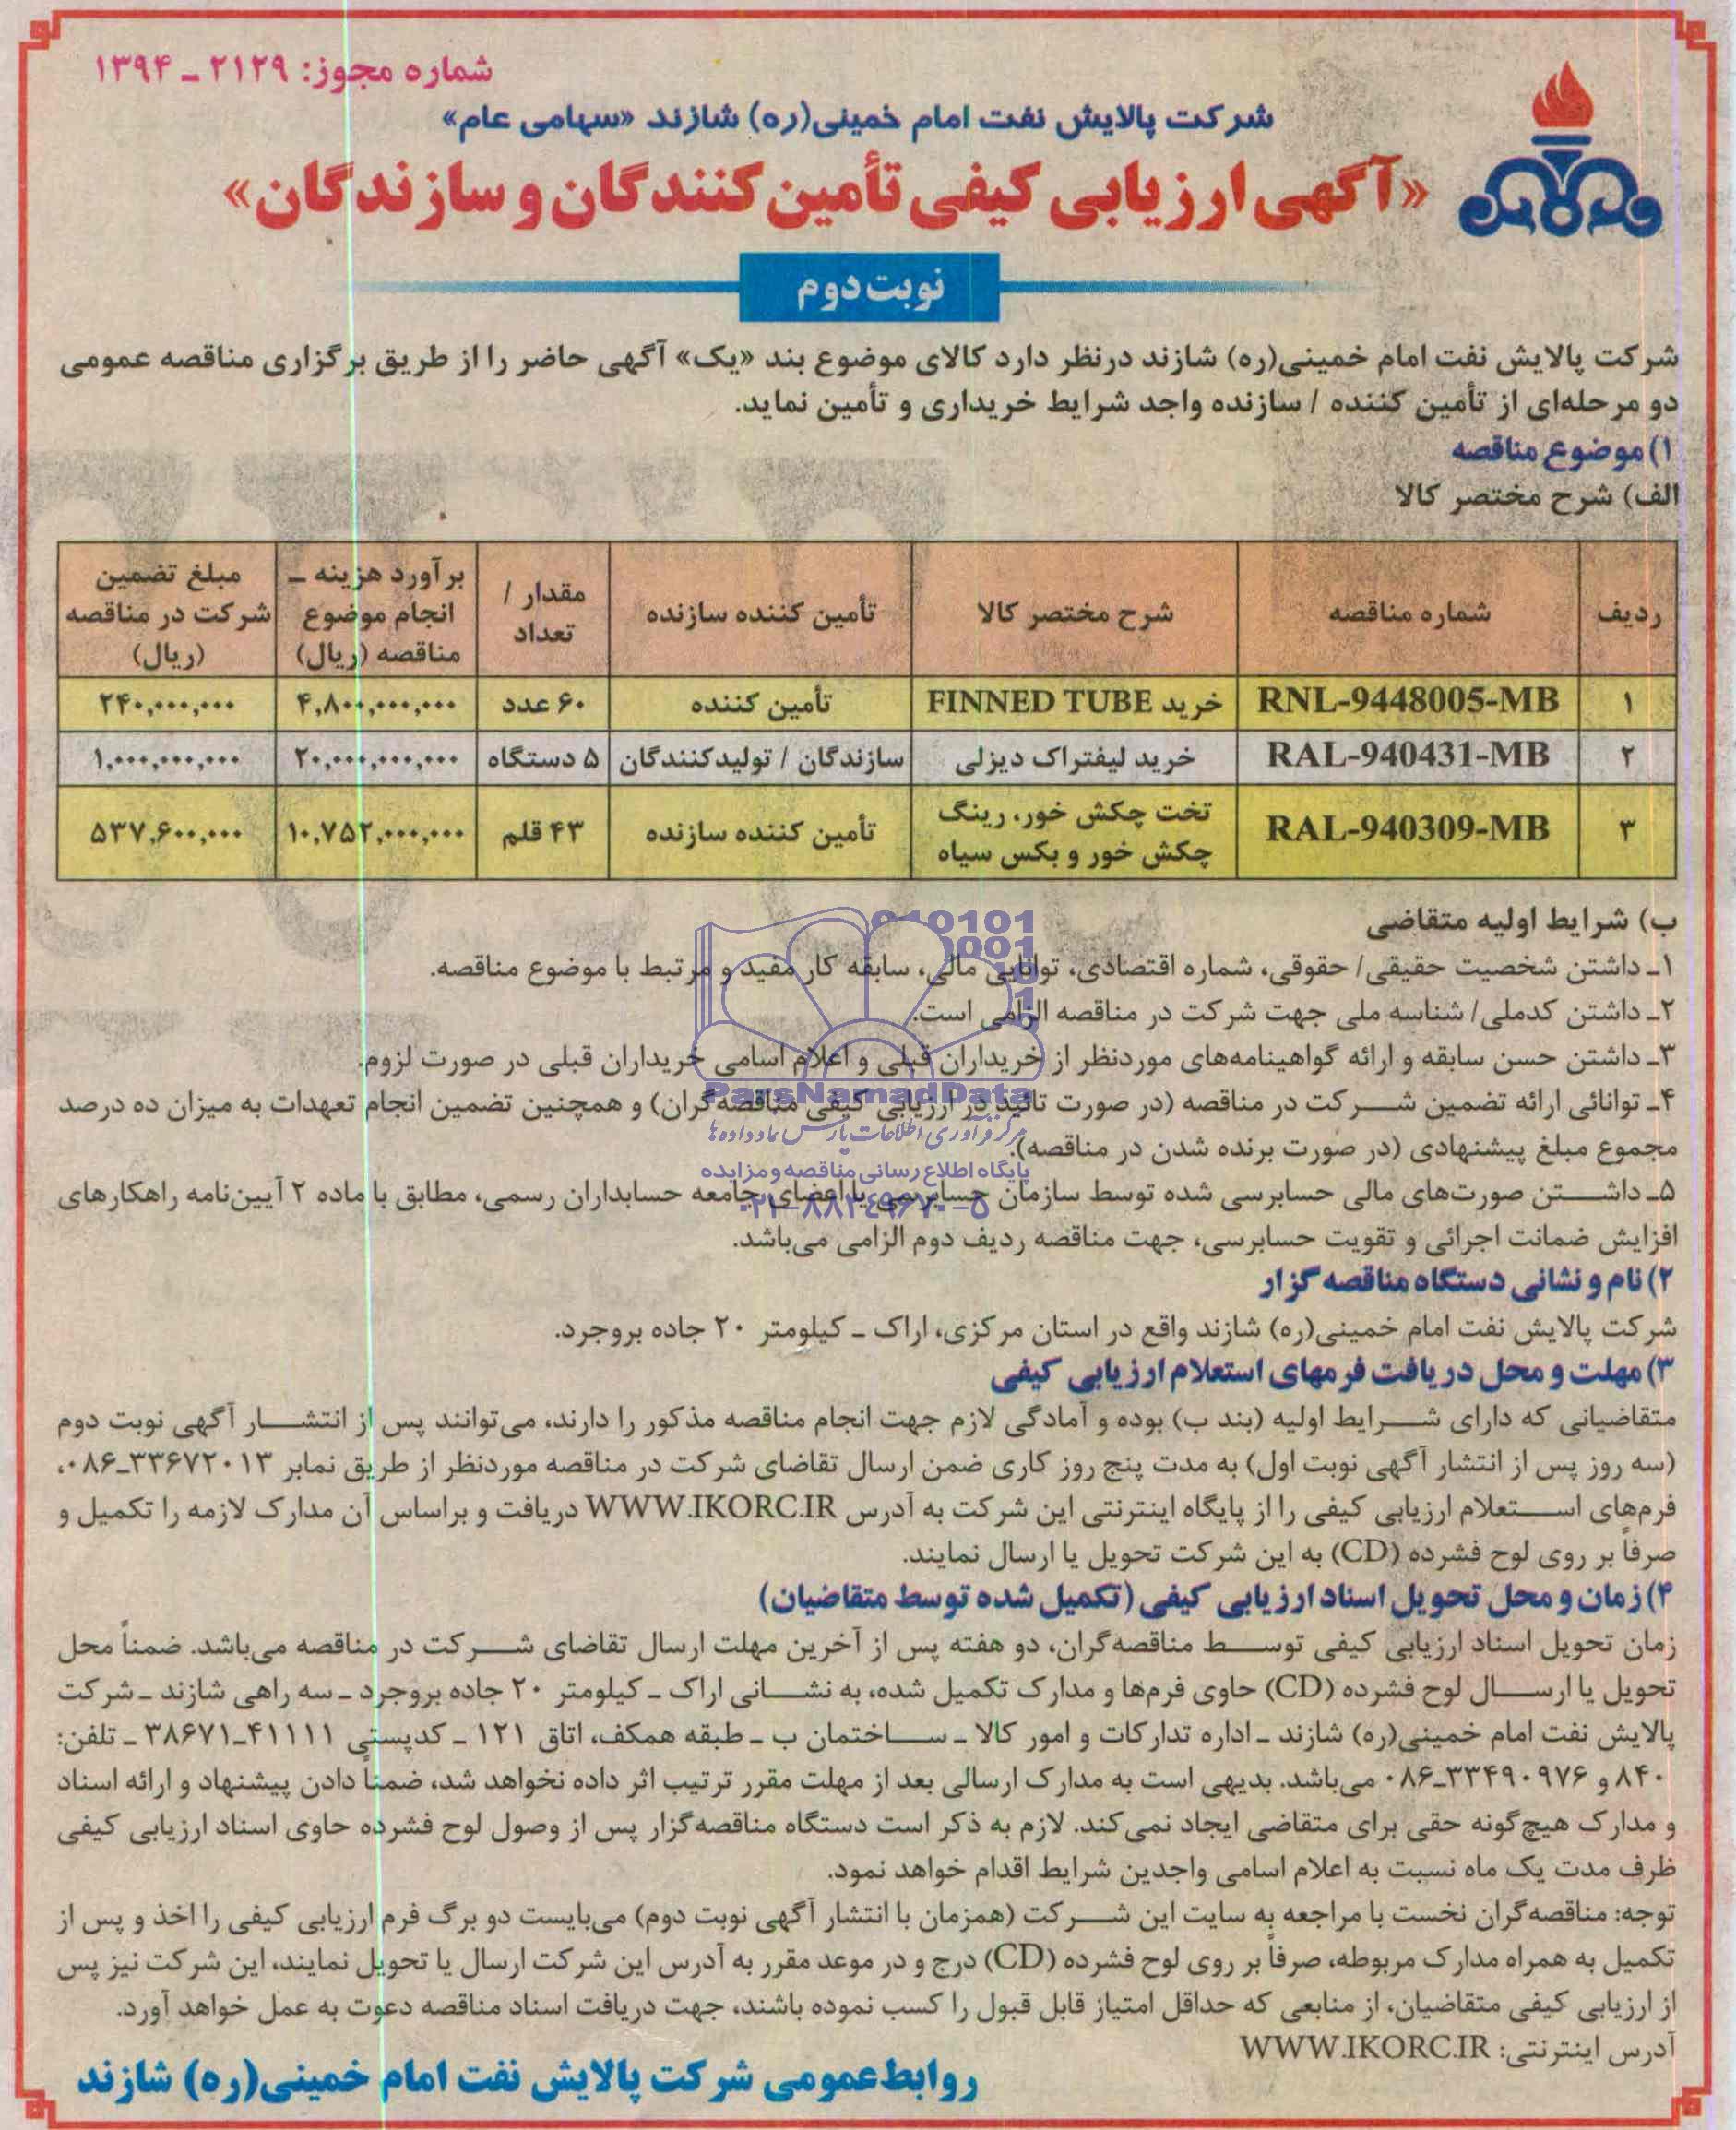 شماره مجوز: ۲۱۲۹ ـ ۱۳۹۴
شرکت پالایش نفت امام خمینی(ره) شازند «سهامی عام»
«آگهی ارزیابی کیفی تأمین کنندگان و سازندگان»
نوبت دوم
شرکت پالایش نفت امام خمینی(ره) شازند درنظر دارد کالای موضوع بند «یک» آگهی حاضر را از طریق برگزاری مناقصه عمومی
دو مرحله‌ای از تأمین کننده / سازنده واجد شرایط خریداری و تأمین نماید.
۱) موضوع مناقصه
الف) شرح مختصر کالا
ردیف | شماره مناقصه | شرح مختصر کالا | تأمین کننده سازنده | مقدار / تعداد | برآورد هزینه ـ انجام موضوع مناقصه (ریال) | مبلغ تضمین شرکت در مناقصه (ریال)
۱ | RNL-9448005-MB | خرید FINNED TUBE | تأمین کننده | ۶۰ عدد | ۴,۸۰۰,۰۰۰,۰۰۰ | ۲۴۰,۰۰۰,۰۰۰
۲ | RAL-940431-MB | خرید لیفتراک دیزلی | سازندگان / تولیدکنندگان | ۵ دستگاه | ۲۰,۰۰۰,۰۰۰,۰۰۰ | ۱,۰۰۰,۰۰۰,۰۰۰
۳ | RAL-940309-MB | تخت چکش خور، رینگ چکش خور و بکس سیاه | تأمین کننده سازنده | ۴۳ قلم | ۱۰,۷۵۲,۰۰۰,۰۰۰ | ۵۳۷,۶۰۰,۰۰۰
ب) شرایط اولیه متقاضی
۱ـ داشتن شخصیت حقیقی/ حقوقی، شماره اقتصادی، توانایی مالی، سابقه کار مفید و مرتبط با موضوع مناقصه.
۲ـ داشتن کدملی/ شناسه ملی جهت شرکت در مناقصه الزامی است.
۳ـ داشتن حسن سابقه و ارائه گواهینامه‌های موردنظر از خریداران قبلی و اعلام اسامی خریداران قبلی در صورت لزوم.
ParsNamadData
۴ـ توانائی ارائه تضمین شرکت در مناقصه (در صورت تائید در ارزیابی کیفی مناقصه‌گران) و همچنین تضمین انجام تعهدات به میزان ده درصد
مرکز فرآوری اطلاعات پارس نماد داده‌ها
مجموع مبلغ پیشنهادی (در صورت برنده شدن در مناقصه).
پایگاه اطلاع رسانی مناقصه و مزایده
۵ـ داشتن صورت‌های مالی حسابرسی شده توسط سازمان حسابرسی یا اعضای جامعه حسابداران رسمی، مطابق با ماده ۲ آیین‌نامه راهکارهای
۰۲۱-۸۸۳۴۹۶۷۰-۵
افزایش ضمانت اجرائی و تقویت حسابرسی، جهت مناقصه ردیف دوم الزامی می‌باشد.
۲) نام و نشانی دستگاه مناقصه گزار
شرکت پالایش نفت امام خمینی(ره) شازند واقع در استان مرکزی، اراک ـ کیلومتر ۲۰ جاده بروجرد.
۳) مهلت و محل دریافت فرمهای استعلام ارزیابی کیفی
متقاضیانی که دارای شرایط اولیه (بند ب) بوده و آمادگی لازم جهت انجام مناقصه مذکور را دارند، می‌توانند پس از انتشار آگهی نوبت دوم
(سه روز پس از انتشار آگهی نوبت اول) به مدت پنج روز کاری ضمن ارسال تقاضای شرکت در مناقصه موردنظر از طریق نمابر ۳۳۶۷۲۰۱۳ـ۰۸۶،
فرم‌های استعلام ارزیابی کیفی را از پایگاه اینترنتی این شرکت به آدرس WWW.IKORC.IR دریافت و براساس آن مدارک لازمه را تکمیل و
صرفاً بر روی لوح فشرده (CD) به این شرکت تحویل یا ارسال نمایند.
۴) زمان و محل تحویل اسناد ارزیابی کیفی (تکمیل شده توسط متقاضیان)
زمان تحویل اسناد ارزیابی کیفی توسط مناقصه‌گران، دو هفته پس از آخرین مهلت ارسال تقاضای شرکت در مناقصه می‌باشد. ضمناً محل
تحویل یا ارسال لوح فشرده (CD) حاوی فرم‌ها و مدارک تکمیل شده، به نشانی اراک ـ کیلومتر ۲۰ جاده بروجرد ـ سه راهی شازند ـ شرکت
پالایش نفت امام خمینی(ره) شازند ـ اداره تدارکات و امور کالا ـ ساختمان ب ـ طبقه همکف، اتاق ۱۲۱ ـ کدپستی ۴۱۱۱۱ـ۳۸۶۷۱ ـ تلفن:
۸۴۰ و ۳۳۴۹۰۹۷۶ـ۰۸۶ می‌باشد. بدیهی است به مدارک ارسالی بعد از مهلت مقرر ترتیب اثر داده نخواهد شد، ضمناً دادن پیشنهاد و ارائه اسناد
و مدارک هیچ گونه حقی برای متقاضی ایجاد نمی‌کند. لازم به ذکر است دستگاه مناقصه‌گزار پس از وصول لوح فشرده حاوی اسناد ارزیابی کیفی
ظرف مدت یک ماه نسبت به اعلام اسامی واجدین شرایط اقدام خواهد نمود.
توجه: مناقصه‌گران نخست با مراجعه به سایت این شرکت (همزمان با انتشار آگهی نوبت دوم) می‌بایست دو برگ فرم ارزیابی کیفی را اخذ و پس از
تکمیل به همراه مدارک مربوطه، صرفاً بر روی لوح فشرده (CD) درج و در موعد مقرر به آدرس این شرکت ارسال یا تحویل نمایند، این شرکت نیز پس
از ارزیابی کیفی متقاضیان، از منابعی که حداقل امتیاز قابل قبول را کسب نموده باشند، جهت دریافت اسناد مناقصه دعوت به عمل خواهد آورد.
آدرس اینترنتی: WWW.IKORC.IR
روابط عمومی شرکت پالایش نفت امام خمینی(ره) شازند